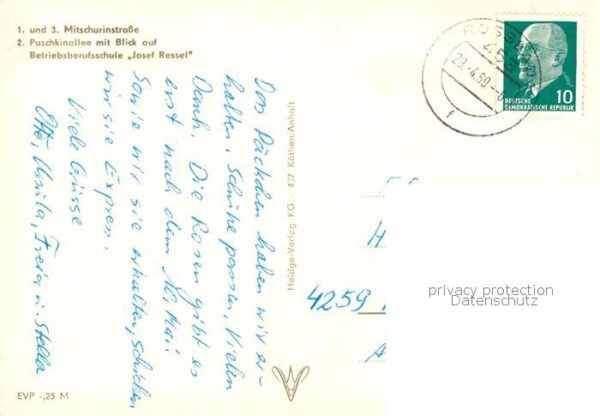 1. und 3. Mitschurinstraße
2. Puschkinallee mit Blick auf
Betriebsberufsschule „Josef Ressel"
Das Päckchen haben wir er-
halten, Schuhe passen, Vielen
Dank. Die Rosen gibt es
erst nach dem 10. Mai
Sowie wir sie erhalten, schicken
wir sie Express.
Viele Grüsse
Otto, Ursula, Freia u. Stella
EVP -,25 M
Heldge-Verlag KG · 437 Köthen/Anhalt
453
29.-4.69.-
f
DEUTSCHE
DEMOKRATISCHE REPUBLIK
10
H
4259
A
privacy protection
Datenschutz